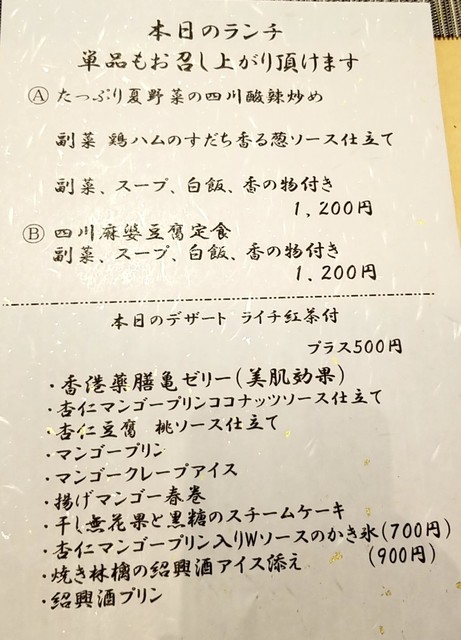 本日のランチ
単品もお召し上がり頂けます
Ⓐ たっぷり夏野菜の四川酸辣炒め
副菜 鶏ハムのすだち香る葱ソース仕立て
副菜、スープ、白飯、香の物付き
1,200円
Ⓑ 四川麻婆豆腐定食
副菜、スープ、白飯、香の物付き
1,200円
本日のデザート ライチ紅茶付
プラス500円
・香港薬膳亀ゼリー(美肌効果)
・杏仁マンゴープリンココナッツソース仕立て
・杏仁豆腐 桃ソース仕立て
・マンゴープリン
・マンゴークレープアイス
・揚げマンゴー春巻
・干し無花果と黒糖のスチームケーキ
・杏仁マンゴープリン入りWソースのかき氷(700円)
・焼き林檎の紹興酒アイス添え (900円)
・紹興酒プリン